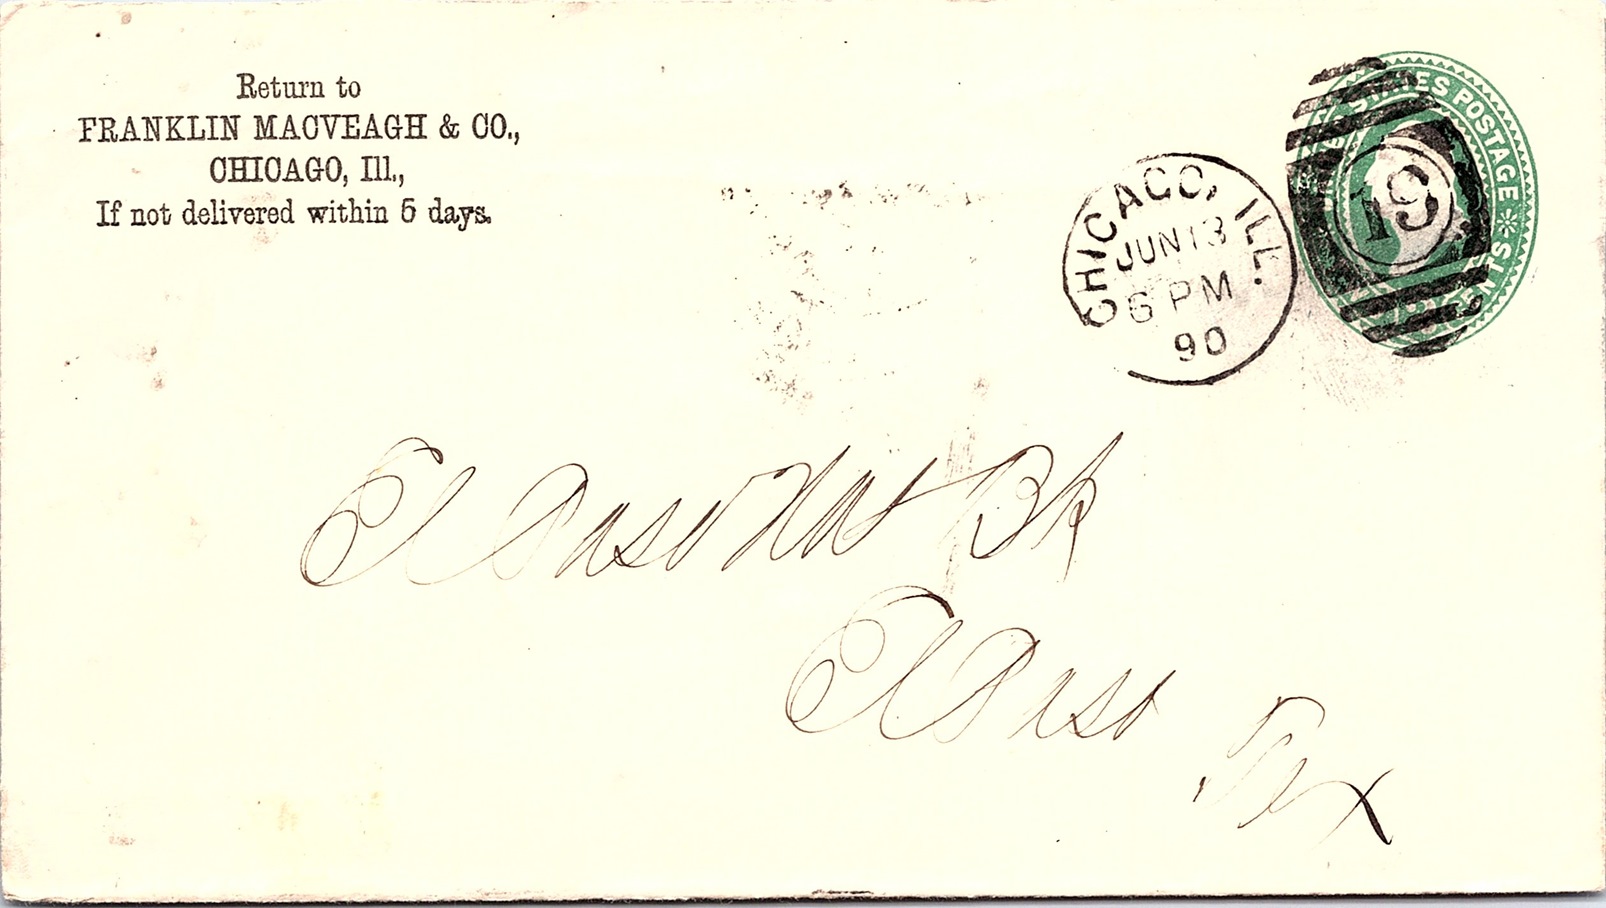 Return to
FRANKLIN MACVEAGH & CO.,
CHICAGO, Ill.,
If not delivered within 5 days.
CHICAGO, ILL.
JUN 13
6 PM
90
19
STATES POSTAGE
CENTS
El Paso Nat Bk
El Paso
Tex